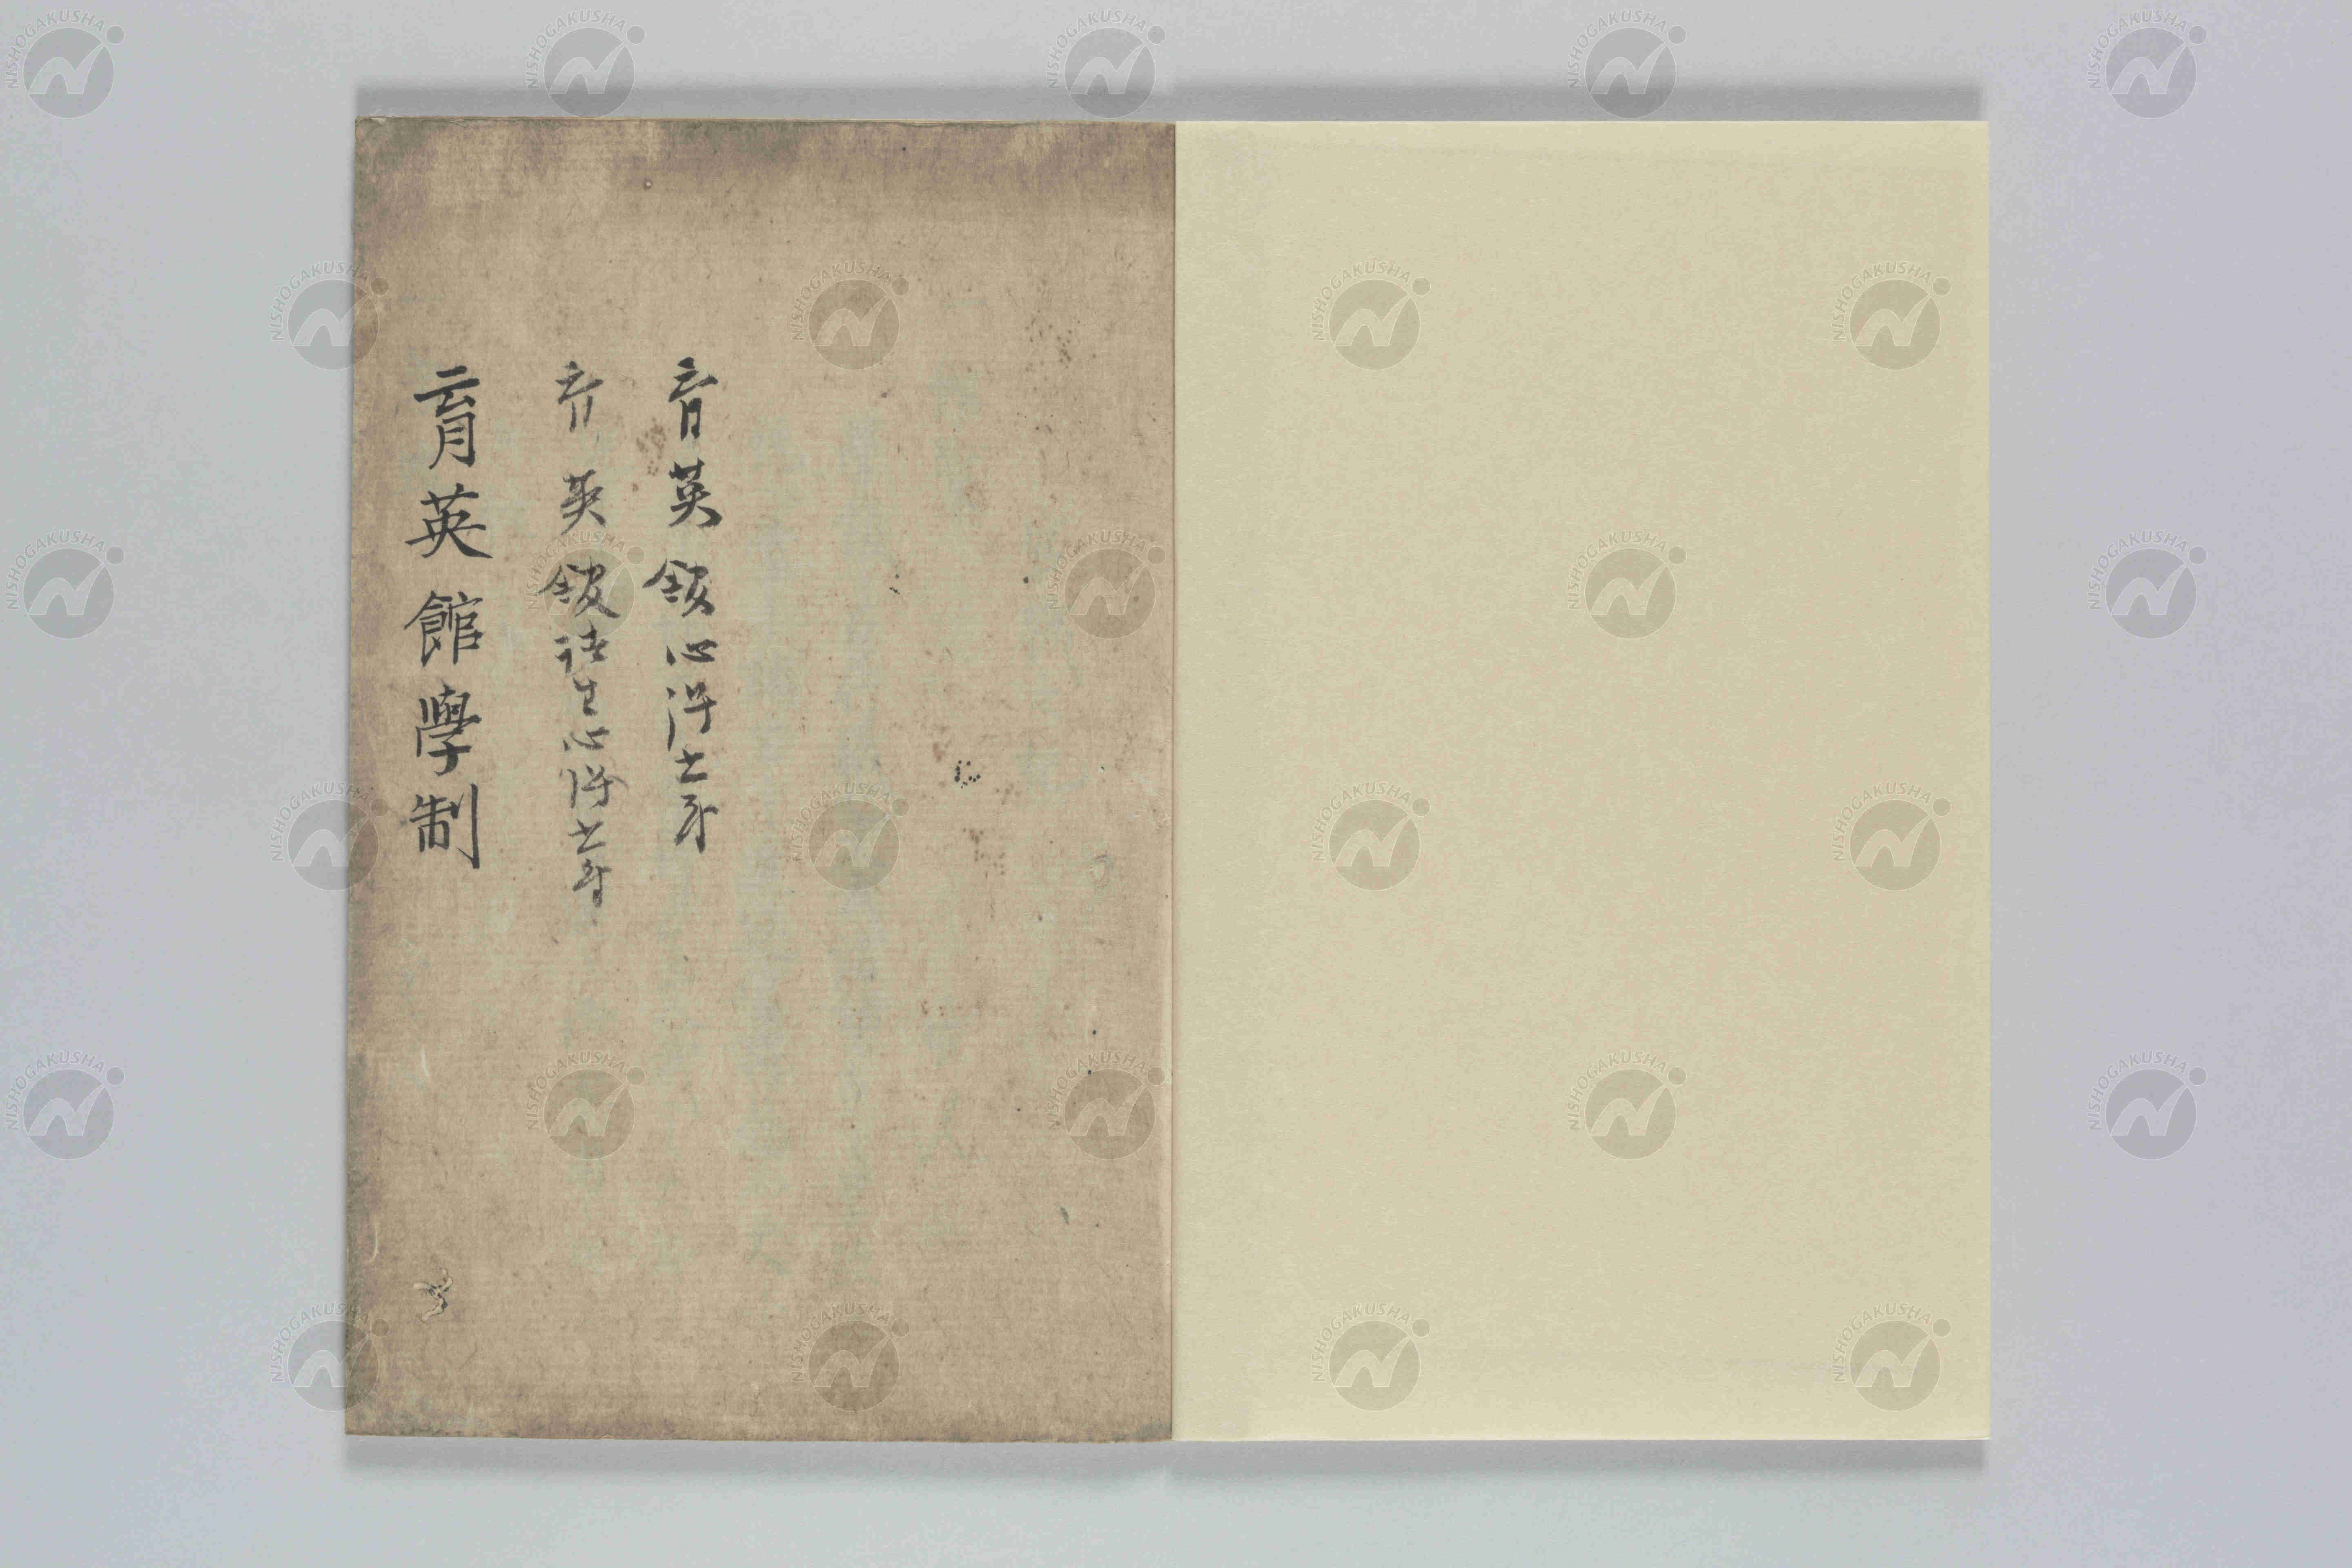 育英館心得之事
育英館諸生心得之事
育英館學制
NISHOGAKUSHA